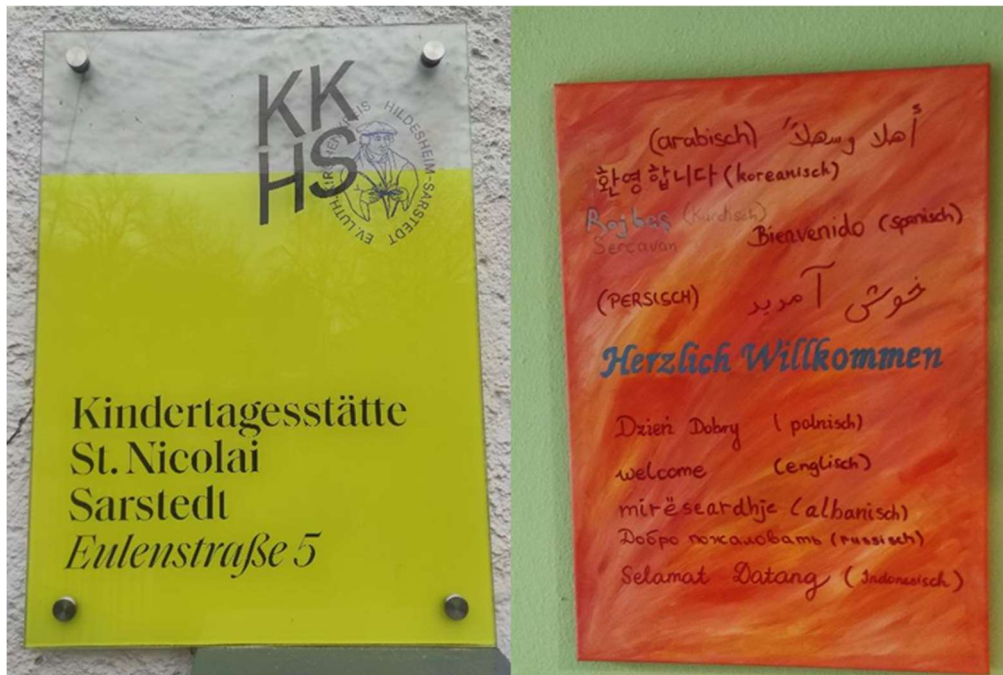 KK
HS
EV. LUTH. KIRCHENKREIS HILDESHEIM-SARSTEDT
Kindertagesstätte
St. Nicolai
Sarstedt
Eulenstraße 5
(arabisch) أهلا وسهلاً
환영합니다 (koreanisch)
Rojbaş (Kurdisch)
Serçavan
Bienvenido (spanisch)
(PERSISCH) خوش آمدید
Herzlich Willkommen
Dzień Dobry (polnisch)
welcome (englisch)
mirëseardhje (albanisch)
Добро пожаловать (russisch)
Selamat Datang (Indonesisch)